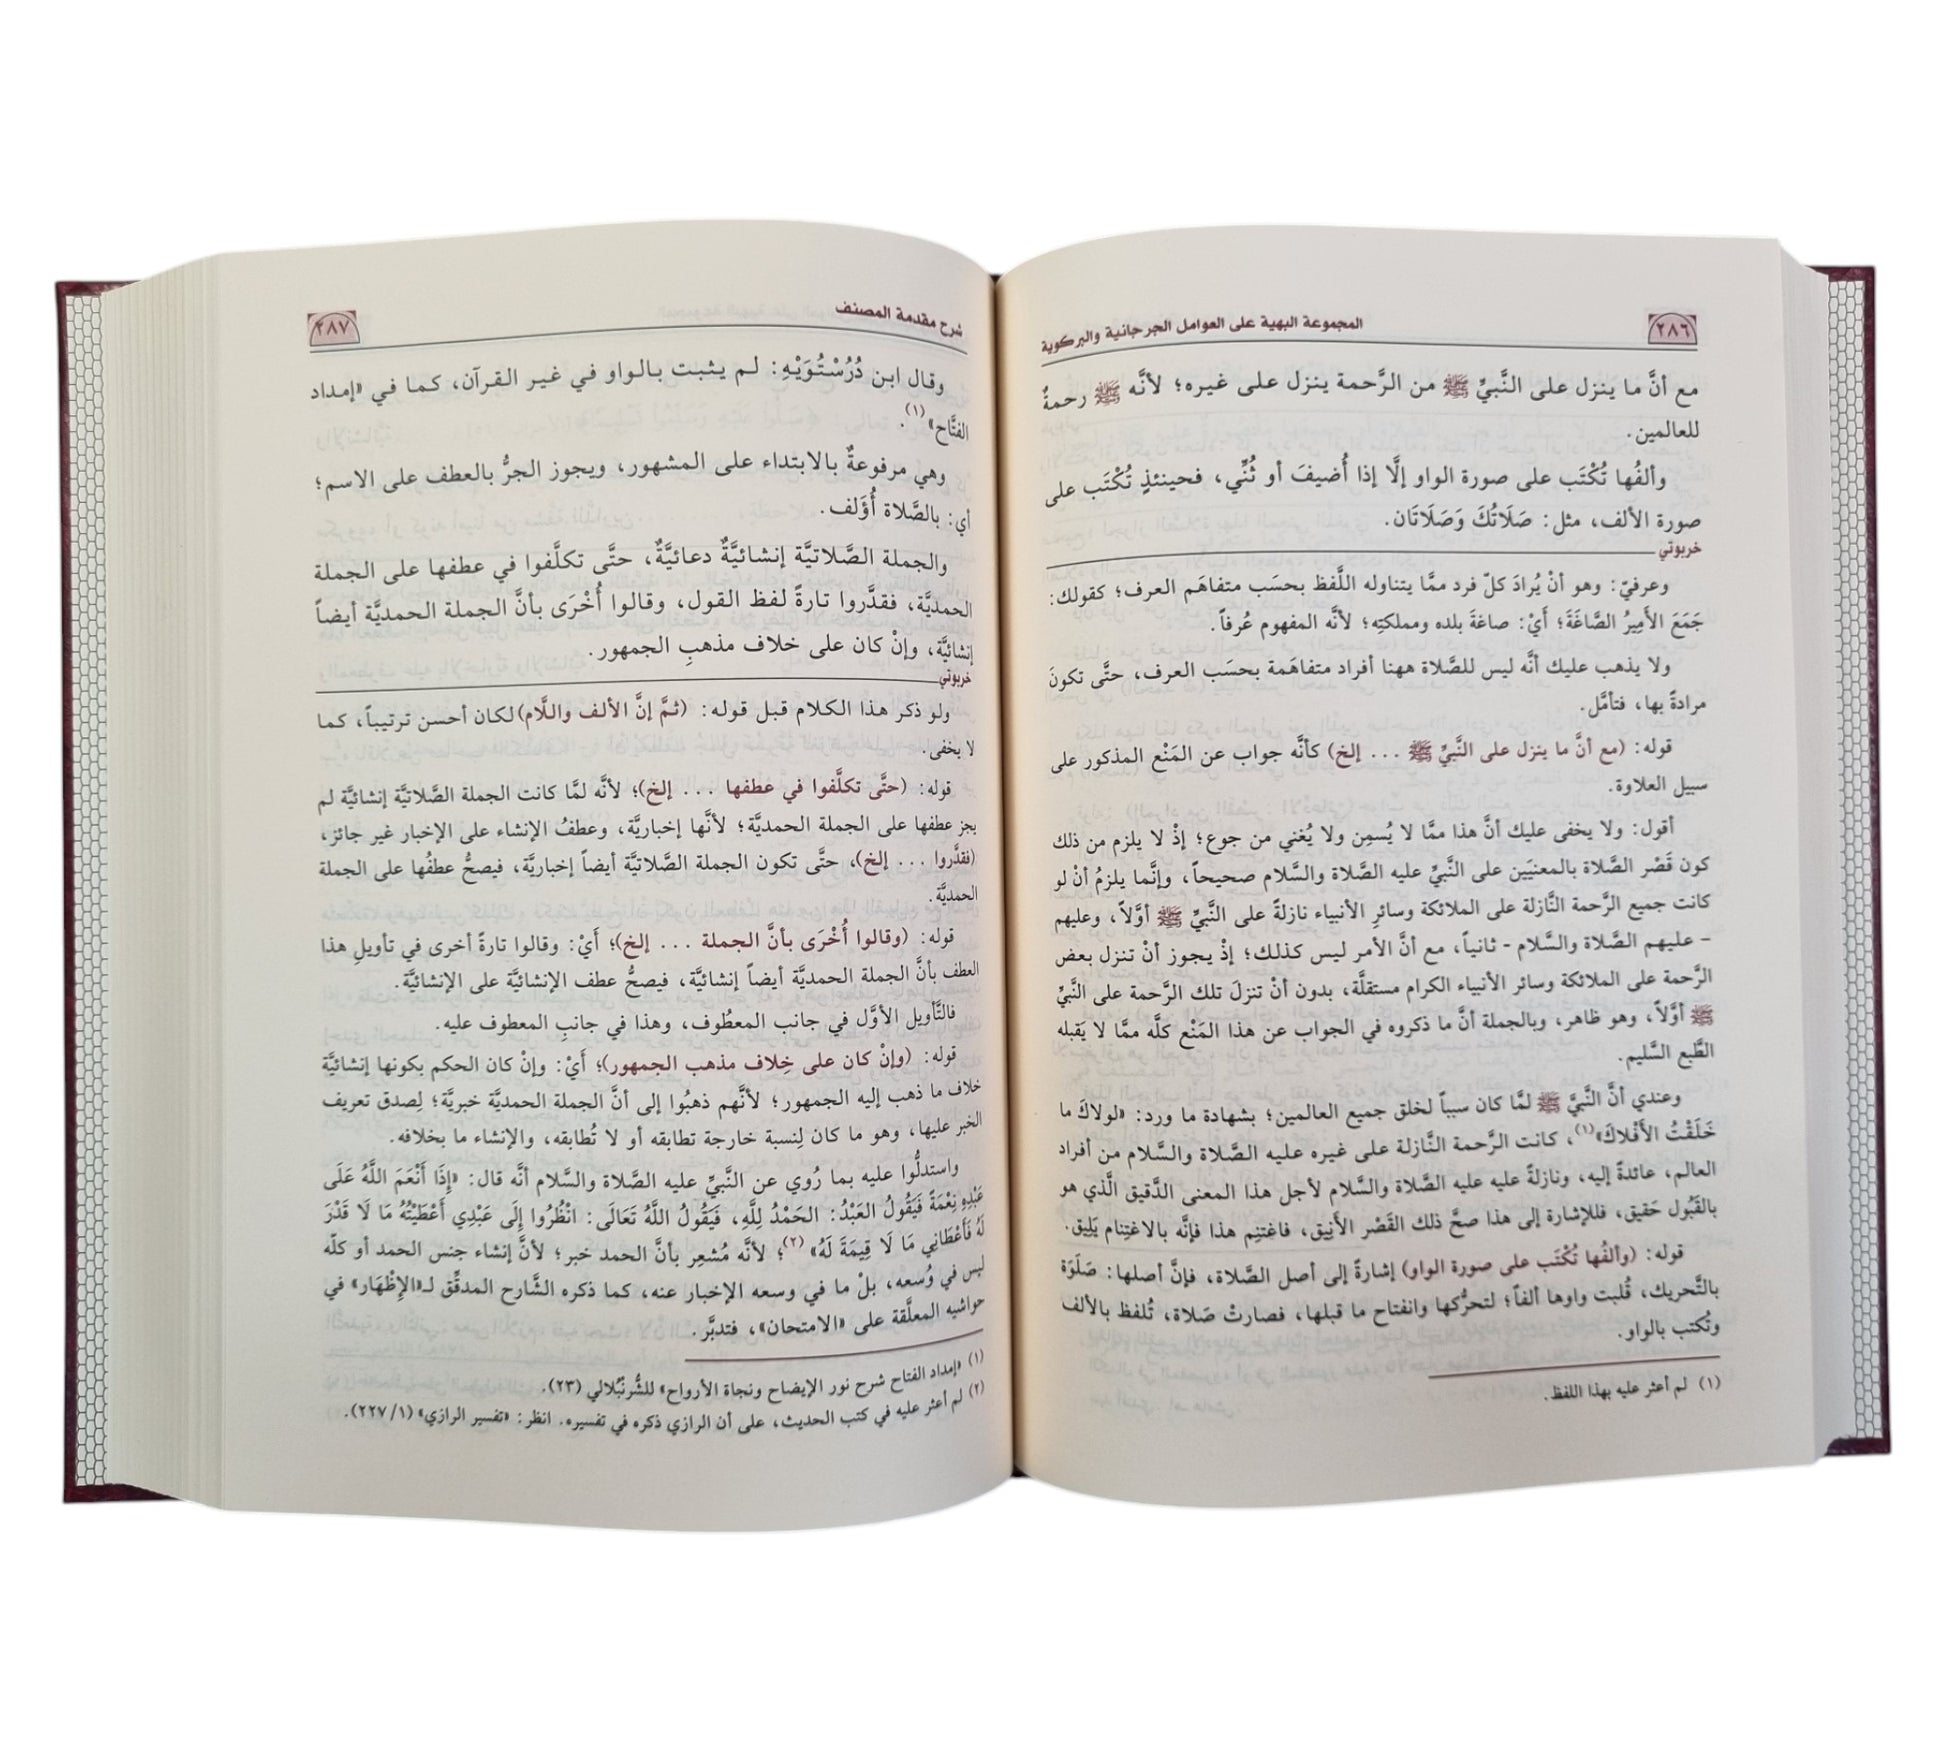 ٢٨٦
المجموعة البهية على العوامل الجرجانية والبركوية
مع أنَّ ما ينزل على النَّبيِّ ﷺ من الرَّحمة ينزل على غيره؛ لأنَّه ﷺ رحمةٌ
للعالمين.
وألفُها تُكْتَب على صورة الواو إلَّا إذا أُضيفَ أو ثُنِّي، فحينئذٍ تُكْتَب على
صورة الألف، مثل: صَلَاتُكَ وَصَلَاتَان.
خربوتي
وعرفيّ: وهو أنْ يُرادَ كلّ فرد ممَّا يتناوله اللَّفظ بحسَب متفاهَم العرف؛ كقولك:
جَمَعَ الأَمِيرُ الصَّاغَةَ؛ أيْ: صاغةَ بلده ومملكتِه؛ لأنَّه المفهوم عُرفاً.
ولا يذهب عليك أنَّه ليس للصَّلاة ههنا أفراد متفاهَمة بحسَب العرف، حتَّى تكونَ
مرادةً بها، فتأمَّل.
قوله: (مع أنَّ ما ينزل على النَّبيِّ ﷺ ... إلخ) كأنَّه جواب عن المَنْع المذكور على
سبيل العلاوة.
أقول: ولا يخفى عليك أنَّ هذا ممَّا لا يُسمِن ولا يُغني من جوع؛ إذْ لا يلزم من ذلك
كون قَصْر الصَّلاة بالمعنيَين على النَّبيِّ عليه الصَّلاة والسَّلام صحيحاً، وإنَّما يلزمُ أنْ لو
كانت جميع الرَّحمة النَّازلة على الملائكة وسائرِ الأنبياء نازلةً على النَّبيِّ ﷺ أوَّلاً، وعليهم
- عليهم الصَّلاة والسَّلام - ثانياً، مع أنَّ الأمر ليس كذلك؛ إذْ يجوز أنْ تنزل بعض
الرَّحمة على الملائكة وسائر الأنبياء الكرام مستقلَّة، بدون أنْ تنزلَ تلك الرَّحمة على النَّبيِّ
ﷺ أوَّلاً، وهو ظاهر، وبالجملة أنَّ ما ذكروه في الجواب عن هذا المَنْع كلَّه ممَّا لا يَقبله
الطَّبع السَّليم.
وعندي أنَّ النَّبيَّ ﷺ لمَّا كان سبباً لخلق جميع العالمين؛ بشهادة ما ورد: «لولاكَ ما
خَلَقْتُ الأَفْلاكَ»(١)، كانت الرَّحمة النَّازلة على غيره عليه الصَّلاة والسَّلام من أفراد
العالم، عائدةً إليه، ونازلةً عليه عليه الصَّلاة والسَّلام لأجل هذا المعنى الدَّقيق الَّذي هو
بالقَبُول حَقيق، فللإشارة إلى هذا صحَّ ذلك القَصْر الأَنِيق، فاغتنِم هذا فإنَّه بالاغتِنام يَلِيق.
قوله: (وألفُها تُكْتَب على صورة الواو) إشارةً إلى أصل الصَّلاة، فإنَّ أصلها: صَلَوَة
بالتَّحريك، قُلبت واوها ألفاً؛ لتحرُّكها وانفتاح ما قبلها، فصارتْ صَلاة، تُلفظ بالألف
وتُكتب بالواو.
(١) لم أعثر عليه بهذا اللفظ.
شرح مقدمة المصنف
٢٨٧
وقال ابن دُرُسْتُوَيْهِ: لم يثبت بالواو في غير القرآن، كما في «إمداد
الفتَّاح»(١).
وهي مرفوعةٌ بالابتداء على المشهور، ويجوز الجرُّ بالعطف على الاسم؛
أي: بالصَّلاة أُؤَلف.
والجملة الصَّلاتيَّة إنشائيَّةٌ دعائيَّةٌ، حتَّى تكلَّفوا في عطفها على الجملة
الحمديَّة، فقدَّروا تارةً لفظ القول، وقالوا أُخْرَى بأنَّ الجملة الحمديَّة أيضاً
إنشائيَّة، وإنْ كان على خلاف مذهبِ الجمهور.
خربوتي
ولو ذكر هذا الكلام قبل قوله: (ثمَّ إنَّ الألف واللَّام) لكان أحسن ترتيباً، كما
لا يخفى.
قوله: (حتَّى تكلَّفوا في عطفها ... إلخ)؛ لأنَّه لمَّا كانت الجملة الصَّلاتيَّة إنشائيَّة لم
يجز عطفها على الجملة الحمديَّة؛ لأنَّها إخباريَّة، وعطفُ الإنشاء على الإخبار غير جائز،
(فقدَّروا ... إلخ)، حتَّى تكون الجملة الصَّلاتيَّة أيضاً إخباريَّة، فيصحُّ عطفُها على الجملة
الحمديَّة.
قوله: (وقالوا أُخْرَى بأنَّ الجملة ... إلخ)؛ أَيْ: وقالوا تارةً أخرى في تأويلِ هذا
العطف بأنَّ الجملة الحمديَّة أيضاً إنشائيَّة، فيصحُّ عطف الإنشائيَّة على الإنشائيَّة.
فالتَّأويل الأوَّل في جانب المعطُوف، وهذا في جانبِ المعطوف عليه.
قوله: (وإنْ كان على خِلاف مذهب الجمهور)؛ أَيْ: وإنْ كان الحكم بكونها إنشائيَّة
خلاف ما ذهب إليه الجمهور؛ لأنَّهم ذهبُوا إلى أنَّ الجملة الحمديَّة خبريَّة؛ لِصدق تعريف
الخبر عليها، وهو ما كان لِنسبة خارجة تطابقه أو لا تُطابقه، والإنشاء ما بخلافه.
واستدلُّوا عليه بما رُوي عن النَّبيِّ عليه الصَّلاة والسَّلام أنَّه قال: «إِذَا أَنْعَمَ اللَّهُ عَلَى
عَبْدِهِ نِعْمَةً فَيَقُولُ العَبْدُ: الحَمْدُ لِلَّهِ، فَيَقُولُ اللَّهُ تَعَالَى: انْظُرُوا إِلَى عَبْدِي أَعْطَيْتُهُ مَا لَا قَدْرَ
لَهُ فَأَعْطَانِي مَا لَا قِيمَةَ لَهُ»(٢)؛ لأنَّه مُشعِر بأنَّ الحمد خبر؛ لأنَّ إنشاء جنس الحمد أو كلّه
ليس في وُسعه، بلْ ما في وسعه الإخبار عنه، كما ذكره الشَّارح المدقِّق لـ«الإظْهَار» في
حواشيه المعلَّقة على «الامتحان»، فتدبَّر.
(١) «إمداد الفتاح شرح نور الإيضاح ونجاة الأرواح» للشُّرنْبُلالي (٢٣).
(٢) لم أعثر عليه في كتب الحديث، على أن الرازي ذكره في تفسيره. انظر: «تفسير الرازي» (١/ ٢٢٧).